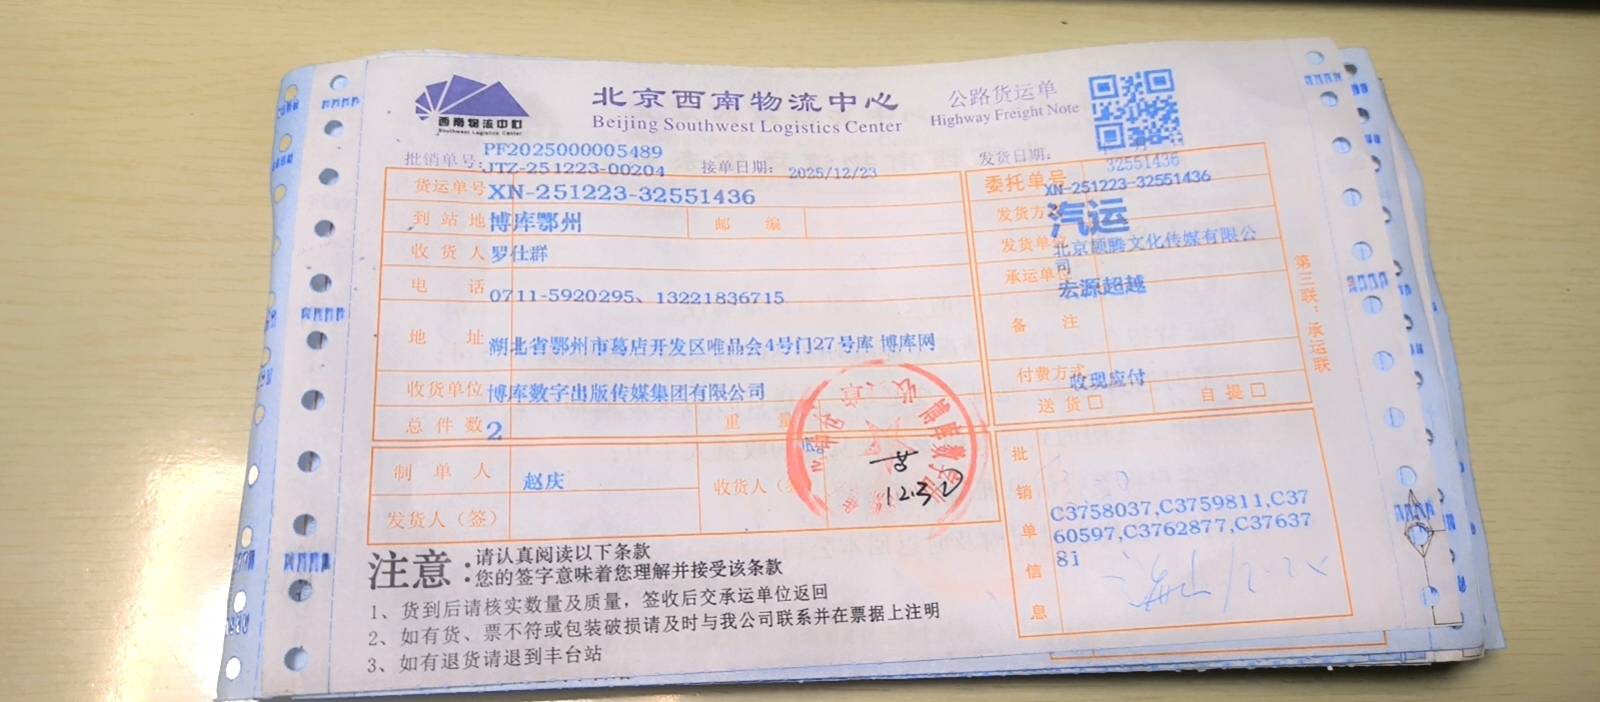 西南物流中心
Southwest Logistics Center
北京西南物流中心
Beijing Southwest Logistics Center
公路货运单
Highway Freight Note
批销单号:
PF2025000005489
JTZ-251223-00204
接单日期:
2025/12/23
发货日期:
32551436
货运单号 XN-251223-32551436
委托单号 XN-251223-32551436
到站地 博库鄂州
邮编
发货方式 汽运
收货人 罗仕群
发货单位 北京颉腾文化传媒有限公
司
电话 0711-5920295、13221836715
承运单位 宏源超越
地址 湖北省鄂州市葛店开发区唯品会4号门27号库 博库网
备注
收货单位 博库数字出版传媒集团有限公司
付费方式 收现应付
总件数 2
重量
送货□ 自提□
制单人 赵庆
收货人
发货人（签）
12.30
批销单信息
C3758037,C3759811,C37
60597,C3762877,C37637
81
第三联：承运联
注意:
请认真阅读以下条款
您的签字意味着您理解并接受该条款
1、货到后请核实数量及质量，签收后交承运单位返回
2、如有货、票不符或包装破损请及时与我公司联系并在票据上注明
3、如有退货请退到丰台站